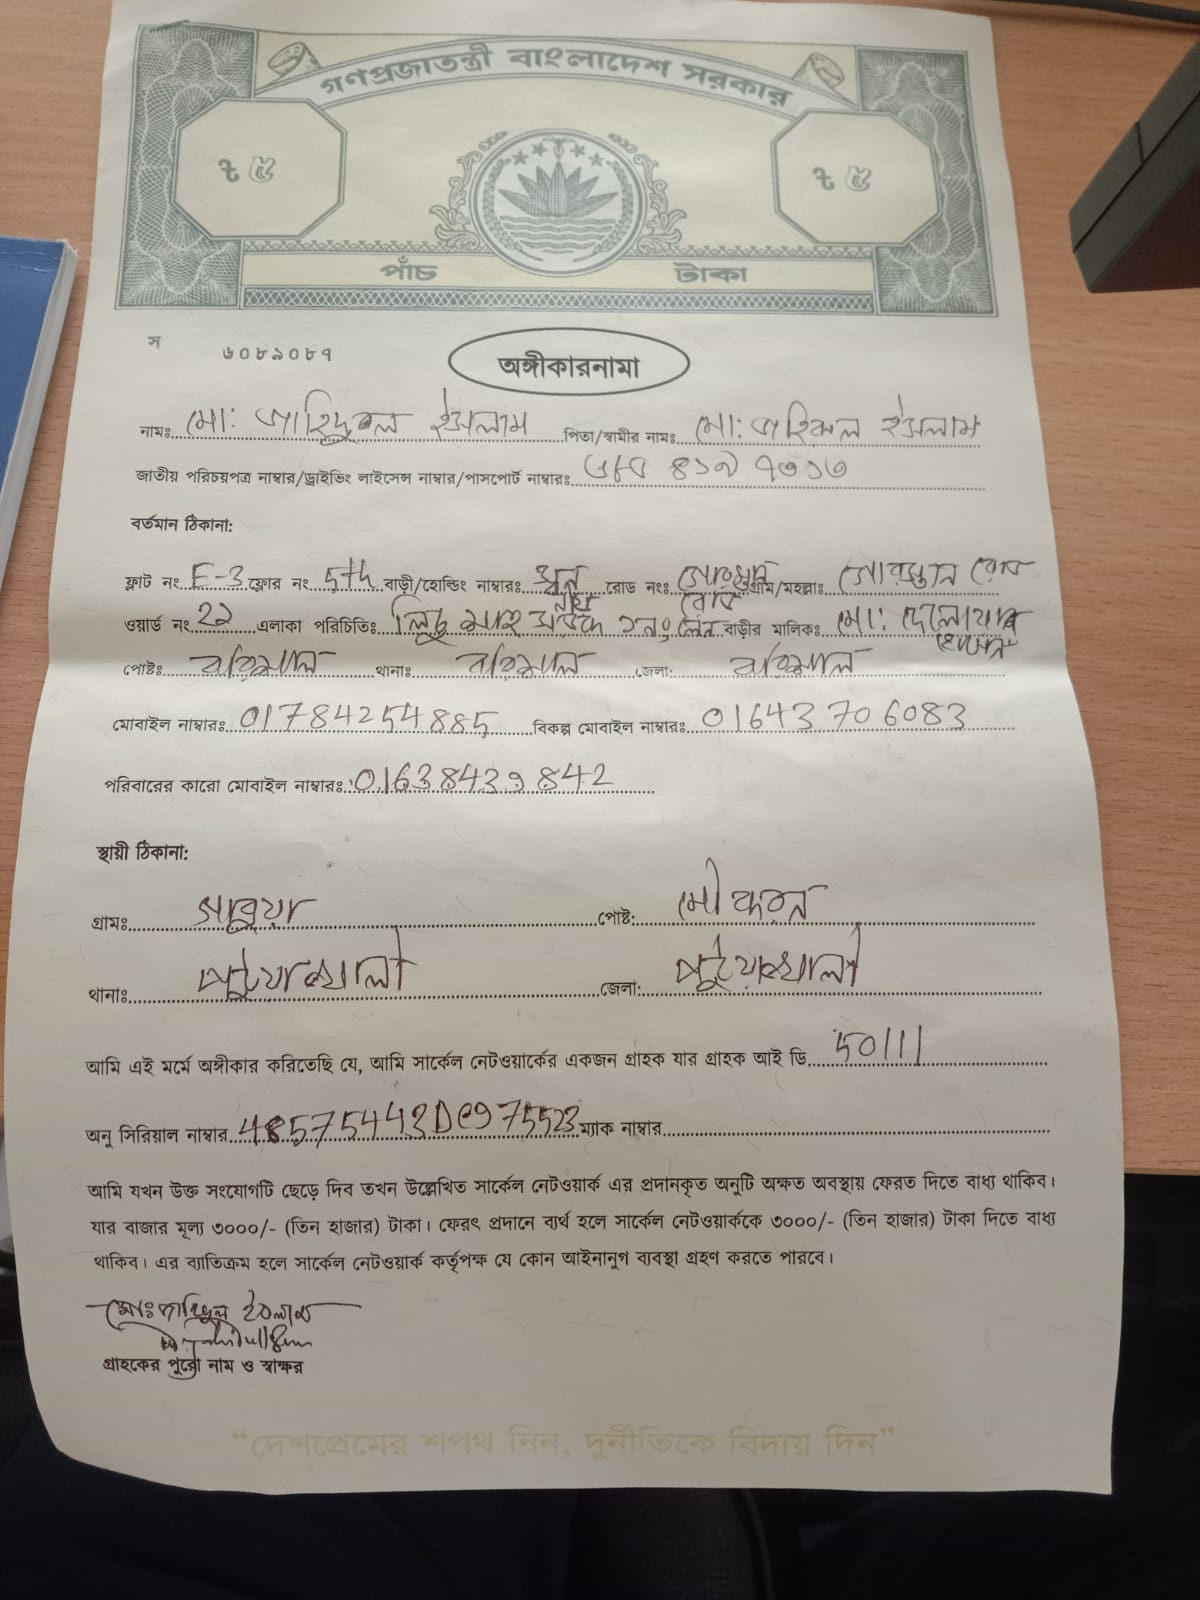 গণপ্রজাতন্ত্রী বাংলাদেশ সরকার
ট ৫ ট ৫
পাঁচ টাকা
স ৬০৮৯০৮৭
অঙ্গীকারনামা
নামঃ মো: জাহিদুল ইসলাম পিতা/স্বামীর নামঃ মো: জহিরুল ইসলাম
জাতীয় পরিচয়পত্র নাম্বার/ড্রাইভিং লাইসেন্স নাম্বার/পাসপোর্ট নাম্বারঃ
বর্তমান ঠিকানা:
ফ্লাট নং E-3 ফ্লোর নং 5th বাড়ী/হোল্ডিং নাম্বারঃ রোড নংঃ গোরস্থান রোড গ্রাম/মহল্লাঃ গোরস্তান রোড
ওয়ার্ড নং 22 এলাকা পরিচিতিঃ লিচু শাহ সড়ক লেন বাড়ীর মালিকঃ মো: দেলোয়ার হোসেন
পোষ্টঃ বরিশাল থানাঃ বরিশাল জেলা: বরিশাল
মোবাইল নাম্বারঃ 01784254885 বিকল্প মোবাইল নাম্বারঃ 01643706083
পরিবারের কারো মোবাইল নাম্বারঃ 01638439842
স্থায়ী ঠিকানা:
গ্রামঃ পোষ্ট: মৌকরন
থানাঃ পটুয়াখালী জেলা: পটুয়াখালী
আমি এই মর্মে অঙ্গীকার করিতেছি যে, আমি সার্কেল নেটওয়ার্কের একজন গ্রাহক যার গ্রাহক আই ডি 50111
অনু সিরিয়াল নাম্বার 48575443DC975523 ম্যাক নাম্বার
আমি যখন উক্ত সংযোগটি ছেড়ে দিব তখন উল্লেখিত সার্কেল নেটওয়ার্ক এর প্রদানকৃত অনুটি অক্ষত অবস্থায় ফেরত দিতে বাধ্য থাকিব।
যার বাজার মূল্য ৩০০০/- (তিন হাজার) টাকা। ফেরৎ প্রদানে ব্যর্থ হলে সার্কেল নেটওয়ার্ককে ৩০০০/- (তিন হাজার) টাকা দিতে বাধ্য
থাকিব। এর ব্যাতিক্রম হলে সার্কেল নেটওয়ার্ক কর্তৃপক্ষ যে কোন আইনানুগ ব্যবস্থা গ্রহণ করতে পারবে।
মোঃ জাহিদুল ইসলাম
গ্রাহকের পুরো নাম ও স্বাক্ষর
“দেশপ্রেমের শপথ নিন, দুর্নীতিকে বিদায় দিন”